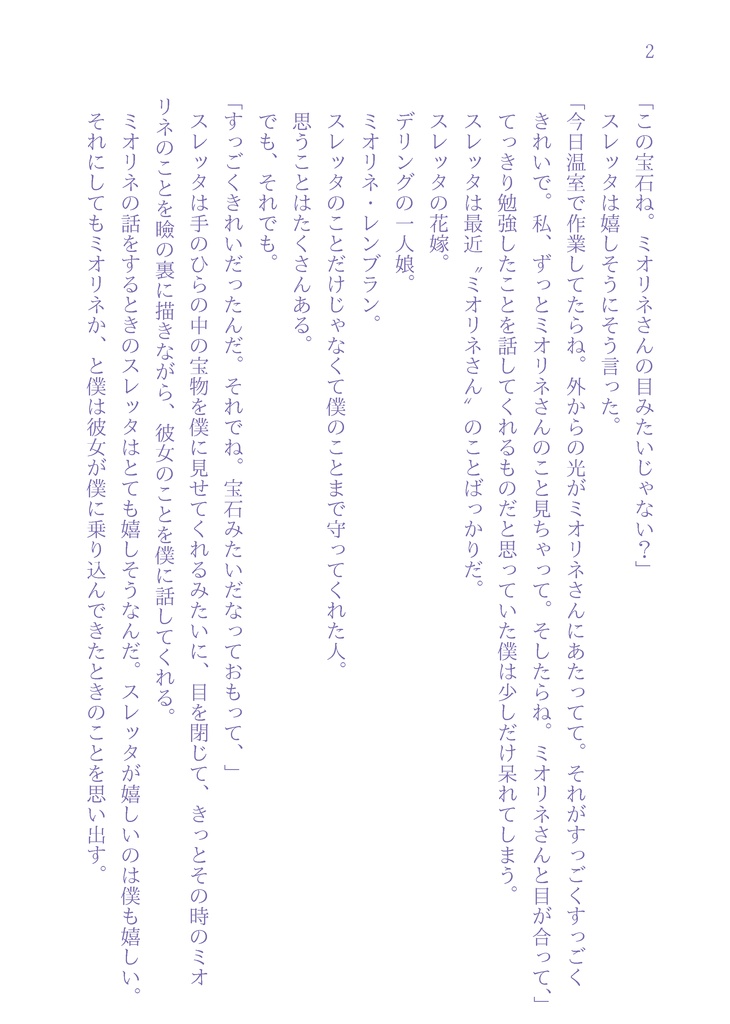 2
「この宝石ね。ミオリネさんの目みたいじゃない？」
スレッタは嬉しそうにそう言った。
「今日温室で作業してたらね。外からの光がミオリネさんにあたってて。それがすっごくすっごく
きれいで。私、ずっとミオリネさんのこと見ちゃって。そしたらね。ミオリネさんと目が合って、」
てっきり勉強したことを話してくれるものだと思っていた僕は少しだけ呆れてしまう。
スレッタは最近〝ミオリネさん〟のことばっかりだ。
スレッタの花嫁。
デリングの一人娘。
ミオリネ・レンブラン。
スレッタのことだけじゃなくて僕のことまで守ってくれた人。
思うことはたくさんある。
でも、それでも。
「すっごくきれいだったんだ。それでね。宝石みたいだなっておもって、」
スレッタは手のひらの中の宝物を僕に見せてくれるみたいに、目を閉じて、きっとその時のミオ
リネのことを瞼の裏に描きながら、彼女のことを僕に話してくれる。
ミオリネの話をするときのスレッタはとても嬉しそうなんだ。スレッタが嬉しいのは僕も嬉しい。
それにしてもミオリネか、と僕は彼女が僕に乗り込んできたときのことを思い出す。